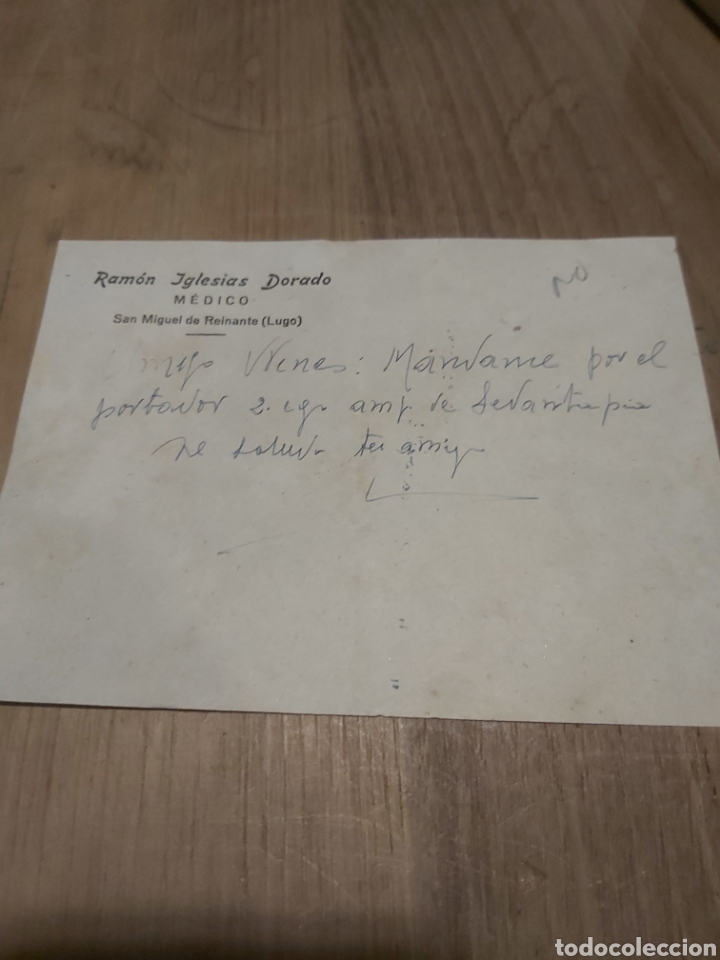 Ramón Iglesias Dorado
MÉDICO
San Miguel de Reinante (Lugo)
NO
Mándame por el
portador 2 amp de
te saluda tu amigo
todocoleccion